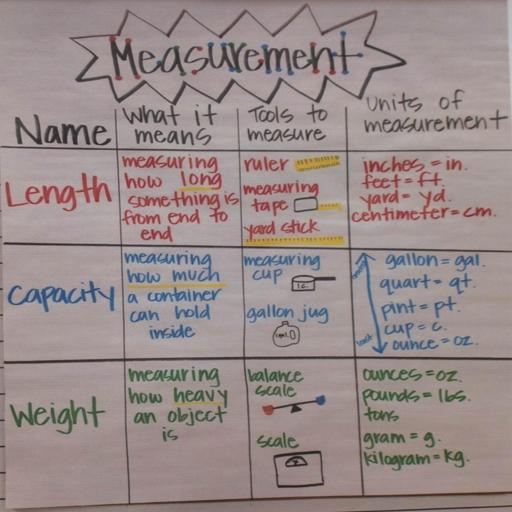 Measurement
Name
What it
means
Tools to
measure
Units of
measurement
Length
measuring
how long
something is
from end to
end
ruler
measuring
tape
yard stick
inches = in.
feet = ft.
yard = yd.
centimeter = cm.
Capacity
measuring
how much
a container
can hold
inside
measuring
cup
1c.
gallon jug
gallon = gal.
quart = qt.
pint = pt.
cup = c.
ounce = oz.
least
Weight
measuring
how heavy
an object
is
balance
scale
scale
ounces = oz.
pounds = lbs.
tons
gram = g.
kilogram = kg.